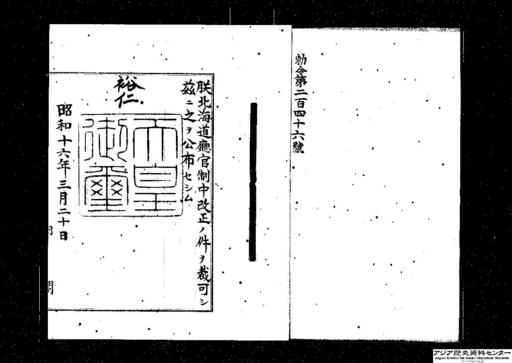 勅令第二百四十六號
朕北海道廳官制中改正ノ件ヲ裁可シ
茲ニ之ヲ公布セシム
裕仁
天皇
御璽
昭和十六年三月二十日
内閣
アジア歴史資料センター
Japan Center for Asian Historical Records